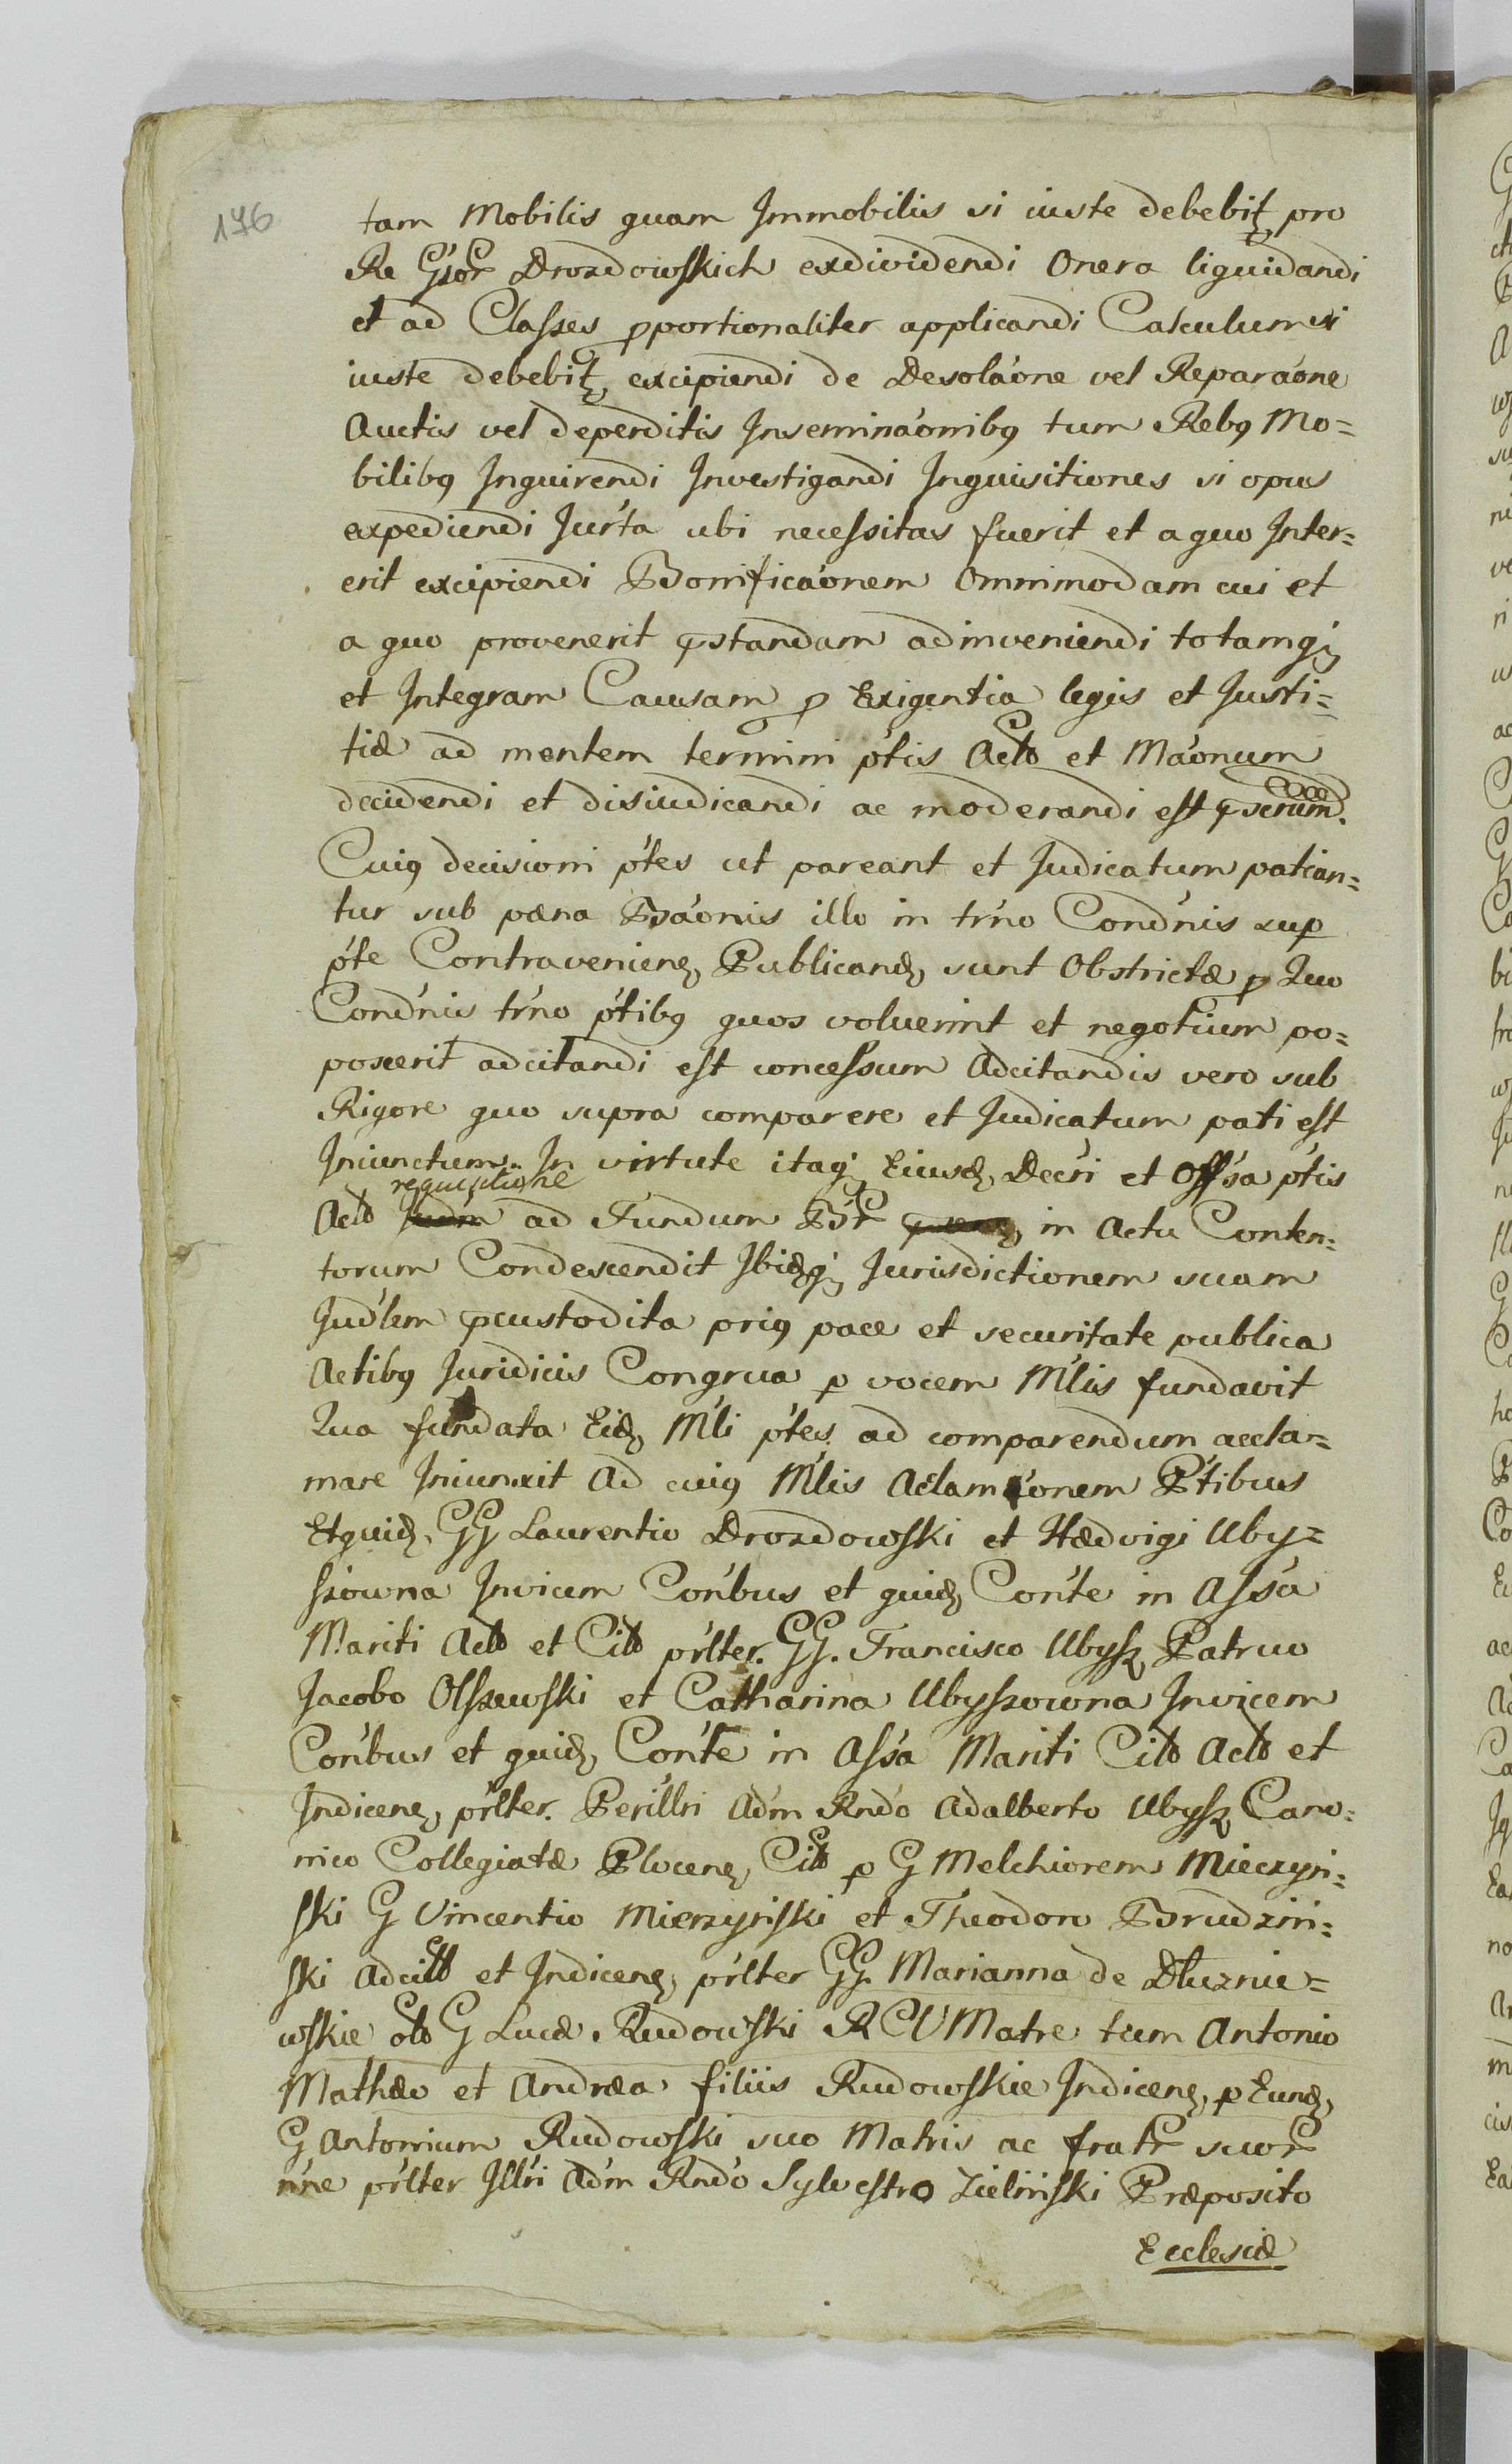 176
tam Mobilis quam Immobilis si iuste debebit, pro
Re Gsor Drozdowskich exdividendi Onera liquidandi
et ad Classes pportionaliter applicandi Calculum si
iuste debebit, excipiendi de Desolaóne vel Reparaóne
Auctis vel deperditis Inseminaónibq tum Rebq Mo=
bilibq Inquirendi Investigandi Inquisitiones si opus
expediendi Jur'ta ubi necessitas fuerit et a quo Inter=
erit excipiendi Bonificaónem Omnimodam cui et
a quo provenerit pstandam adinveniendi totamq
et Integram Causam p Exigentia legis et Justi=
tiæ ad mentem termini ptis Acto et Maónum
decidendi et disiudicandi ac moderandi est pserum.
Cuiq decisioni ptes ut pareant et Judicatum patian=
tur sub pæna Baónis illo in trno Condnis sup
pte Contravenienq Publicand, sunt Obstrictæ p Quo
Condnis trno ptibq quos voluerint et negotium po=
poscerit adcitandi est concessum Adcitandis vero sub
Rigore quo supra comparere et Judicatum pati est
Iniunctum. In virtute itaq Eiusd, Decri et Offsa ptis
requisitione
Acto ad Fundum Br in Actu Conten=
torum Condescendit Ibidq Jurisdictionem suam
Judlem pcustodita priq pace et securitate publica
Actibq Juridicis Congrua p vocem Mlis fundavit
Qua fundata Eid, Mli ptes ad comparendum accla=
mare Iniunxit Ad cuiq Mlis Aclamónem Ptibus
Etquid, GG Laurentio Drozdowski et Hædvigi Uby=
szowna Invicem Conbus et quid, Conte in Assa
Mariti Acto et Cito prlter. GG. Francisco Ubysz Patruo
Jacobo Olszewski et Catharina Ubyszowna Invicem
Conbus et quid, Conte in Assa Mariti Cito Acto et
Indicenq, prlter. Perillri Adm Rndo Adalberto Ubysz Cano=
nico Collegiatæ Plocenq, Cito p G Melchiorem Mierzyń=
ski G Vincentio Mierzyński et Theodoro Brudziń=
ski Adcito et Indicenq, prlter GG. Marianna de Dłuznie=
wskie olto G Lucæ Rudowski R C V Matre tum Antonio
Mathæo et Andræa filiis Rudowskie Indicenq, p Eund,
G Antonium Rudowski suo Matris ac fratr suor
nne prlter Illri Adm Rndo Sylvestro Zieliński Præposito
Ecclesiæ